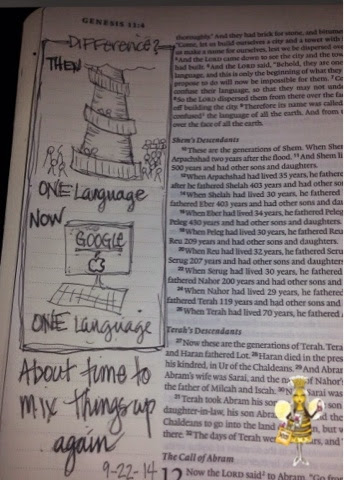 GENESIS 11:4
DIFFERENCE?
THEN
ONE Language
NOW
GOOGLE
ONE Language
About time to
mix things up
again
9-22-14
thoroughly." And they had brick for stone, and
"Come, let us build ourselves a city and a tower with
us make a name for ourselves, lest we be dispersed over
And the LORD came down to see the city and the tow
had built. 6 And the LORD said, "Behold, they are one
language, and this is only the beginning of what they
propose to do will now be impossible for them. 7
confuse their language, so that they may not under
8 So the LORD dispersed them from there over the fac
off building the city. 9 Therefore its name was called
confused the language of all the earth. And from
over the face of all the earth.
Shem's Descendants
10 These are the generations of Shem. When Shem
Arpachshad two years after the flood. 11 And
500 years and had other sons and daughters.
12 When Arpachshad had lived 35 years, he fathered
after he fathered Shelah 403 years and had other son
14 When Shelah had lived 30 years, he fathered
fathered Eber 403 years and had other sons and dau
16 When Eber had lived 34 years, he fathered Peleg
Peleg 430 years and had other sons and daughters.
18 When Peleg had lived 30 years, he fathered Reu
Reu 209 years and had other sons and daughters.
20 When Reu had lived 32 years, he fathered Seru
Serug 207 years and had other sons and daughters
22 When Serug had lived 30 years, he fathered
fathered Nahor 200 years and had other sons and
24 When Nahor had lived 29 years, he fathered
fathered Terah 119 years and had other sons and
26 When Terah had lived 70 years, he fathered A
Terah's Descendants
27 Now these are the generations of Terah. Terah
and Haran fathered Lot. 28 Haran died in the pres
his kindred, in Ur of the Chaldeans. 29 And Abram
Abram's wife was Sarai, and the of Nahor's
the father of Milcah and Iscah. Sarai was
Terah took Abram his son
daughter-in-law, his son Abram
Chaldeans to go into the land but w
there. 32 The days of Terah were and
The Call of Abram
12 Now the LORD said to Abram, "Go from